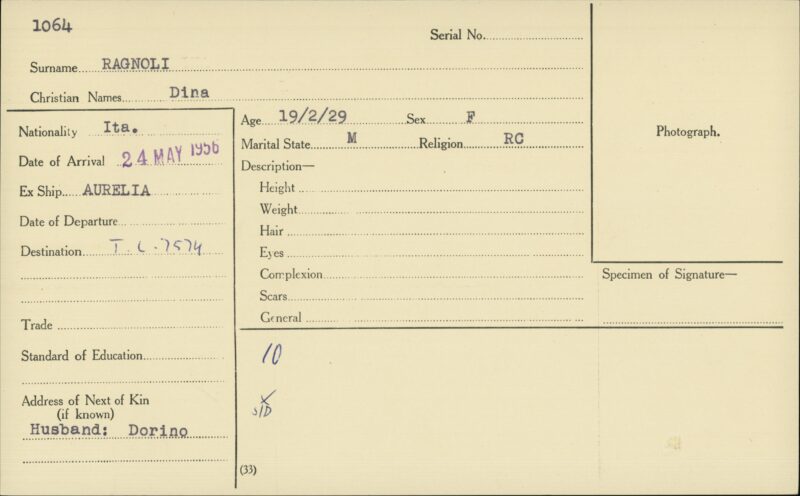 1064
Serial No.
Surname RAGNOLI
Christian Names Dina
Nationality Ita.
Date of Arrival 24 MAY 1956
Ex Ship AURELIA
Date of Departure
Destination T.C.7574
Trade
Standard of Education
Address of Next of Kin
(if known)
Husband: Dorino
Age 19/2/29 Sex F
Marital State M Religion RC
Description—
Height
Weight
Hair
Eyes
Complexion
Scars
General
10
(33)
Photograph.
Specimen of Signature—